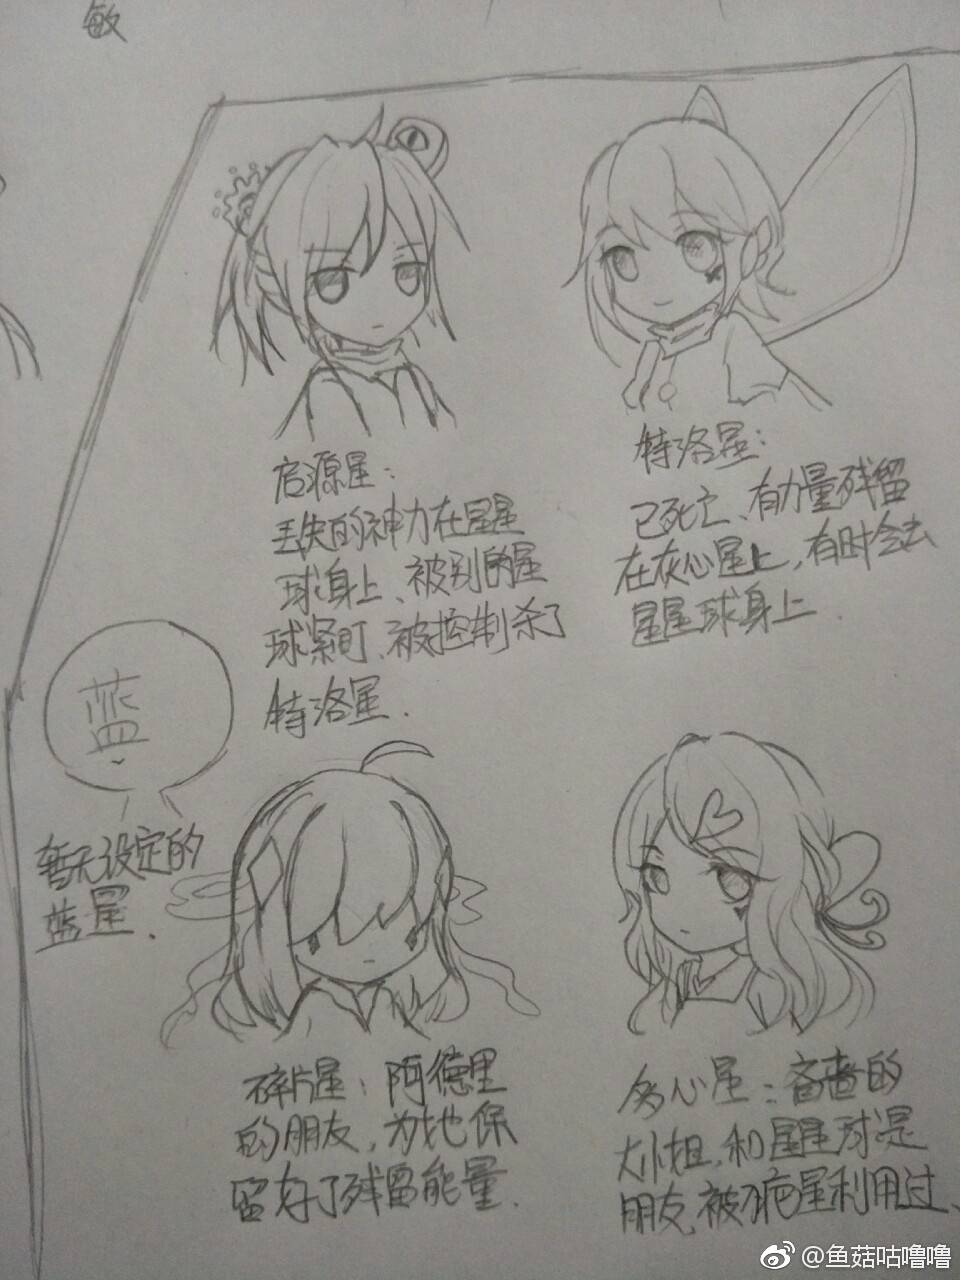 敏
启源星：
丢失的神力在星星
球身上、被别的星
球紧盯、被控制杀了
特洛星．
特洛星：
已死亡、有力量残留
在灰心星上，有时会去
星星球身上．
蓝
暂无设定的
蓝星．
碎片星：阿德里
的朋友，为她保
留好了残留能量．
多心星：吝啬的
大小姐，和星星球是
朋友，被疤星利用过、
@鱼菇咕噜噜